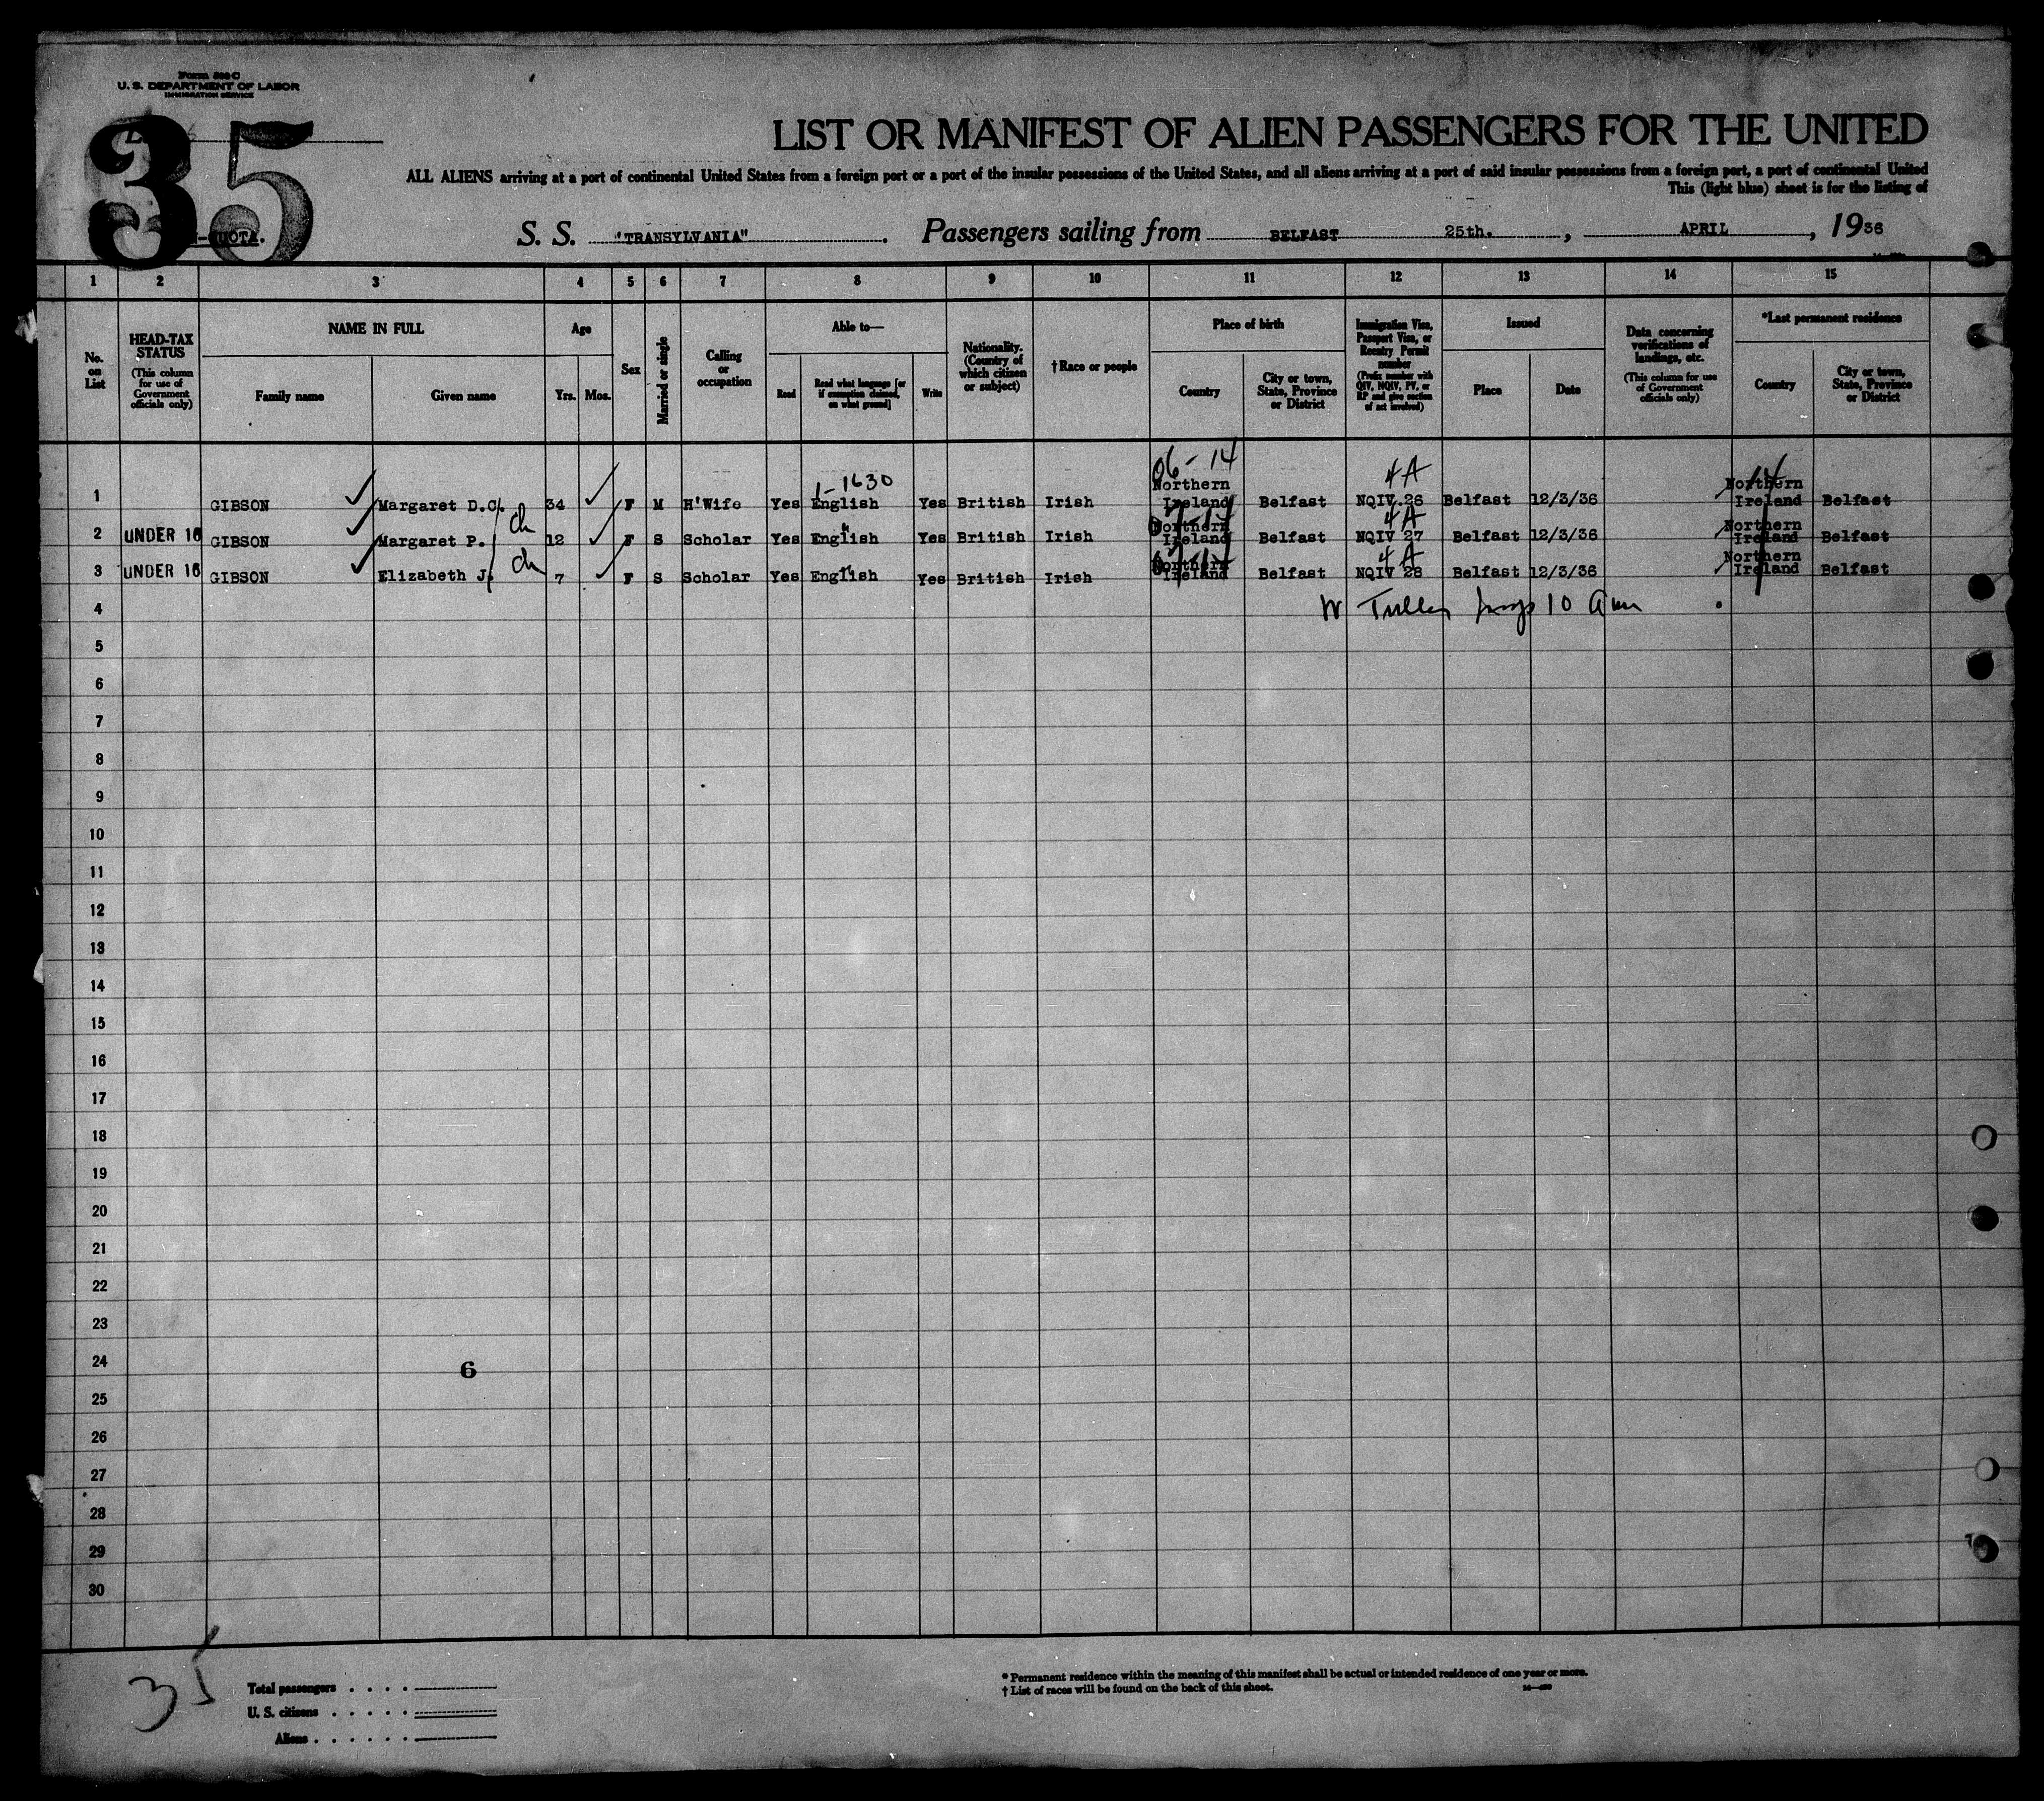 Form 500 C
U. S. DEPARTMENT OF LABOR
IMMIGRATION SERVICE
35
LIST OR MANIFEST OF ALIEN PASSENGERS FOR THE UNITED
ALL ALIENS arriving at a port of continental United States from a foreign port or a port of the insular possessions of the United States, and all aliens arriving at a port of said insular possessions from a foreign port, a port of continental United
This (light blue) sheet is for the listing of
-QUOTA.
S. S. "TRANSYLVANIA". Passengers sailing from BELFAST 25th., APRIL, 1936
1 2 3 4 5 6 7 8 9 10 11 12 13 14 15
No. on List
HEAD-TAX STATUS
(This column for use of Government officials only)
NAME IN FULL
Family name
Given name
Age
Yrs. Mos.
Sex
Married or single
Calling or occupation
Able to—
Read
Read what language [or if exemption claimed, on what ground]
Write
Nationality. (Country of which citizen or subject)
†Race or people
Place of birth
Country
City or town, State, Province or District
Immigration Visa, Passport Visa, or Reentry Permit number
(Prefix number with QIV, NQIV, PV, or RP and give section of act involved)
Issued
Place
Date
Data concerning verifications of landings, etc.
(This column for use of Government officials only)
*Last permanent residence
Country
City or town, State, Province or District
06-14 4A 14
1-1630
1 GIBSON Margaret D.C. 34 F M H'Wife Yes English Yes British Irish Northern Ireland Belfast NQIV 26 Belfast 12/3/36 Northern Ireland Belfast
ch 4A
2 UNDER 16 GIBSON Margaret P. 12 F S Scholar Yes English Yes British Irish Northern Ireland Belfast NQIV 27 Belfast 12/3/36 Northern Ireland Belfast
ch 4A
3 UNDER 16 GIBSON Elizabeth J. 7 F S Scholar Yes English Yes British Irish Northern Ireland Belfast NQIV 28 Belfast 12/3/36 Northern Ireland Belfast
4 10
5
6
7
8
9
10
11
12
13
14
15
16
17
18
19
20
21
22
23
24 6
25
26
27
28
29
30
35
Total passengers
U. S. citizens
Aliens
* Permanent residence within the meaning of this manifest shall be actual or intended residence of one year or more.
† List of races will be found on the back of this sheet.